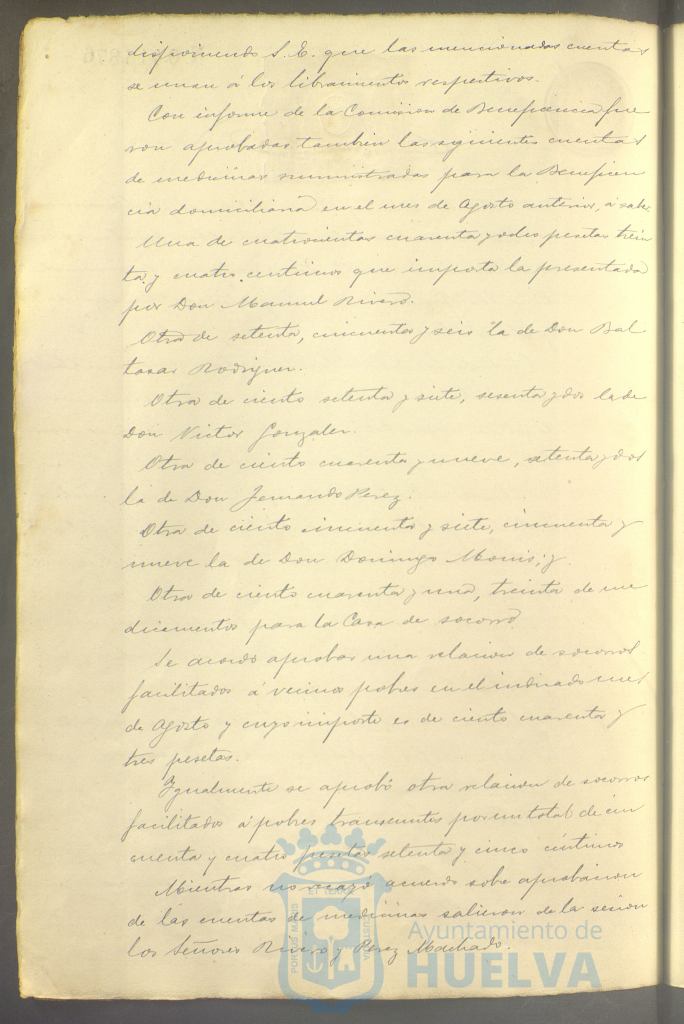 disponiendo S. E. que las mencionadas cuentas
se unan á los libramientos respectivos.
Con informe de la Comision de Beneficencia fue
ron aprobadas tambien las siguientes cuentas
de medicinas suministradas para la Beneficen
cia domiciliaria en el mes de Agosto anterior, á saber.
Una de cuatrocientas cuarenta y ocho pesetas trein
ta y cuatro centimos que importa la presentada
por Don Manuel Rivero.
Otra de setenta, cincuenta y seis la de Don Bal
tasar Rodriguez.
Otra de ciento setenta y siete, sesenta y dos la de
Don Victor Gonzalez.
Otra de ciento cuarenta y nueve, setenta y dos
la de Don Fernando Perez.
Otra de ciento cincuenta y siete, cincuenta y
nueve la de Don Domingo y
Otra de ciento cuarenta y una, treinta de me
dicamentos para la Casa de socorro.
Se acordó aprobar una relacion de socorros
facilitados á vecinos pobres en el indicado mes
de Agosto y cuyo importe es de ciento cuarenta y
tres pesetas.
Igualmente se aprobó otra relacion de socorros
facilitados á pobres transeuntes por un total de cin
cuenta y cuatro pesetas setenta y cinco céntimos
Mientras no recayó acuerdo sobre aprobacion
de las cuentas de medicinas salieron de la sesion
los Señores Rivero y Perez Machado.
Ayuntamiento de
HUELVA